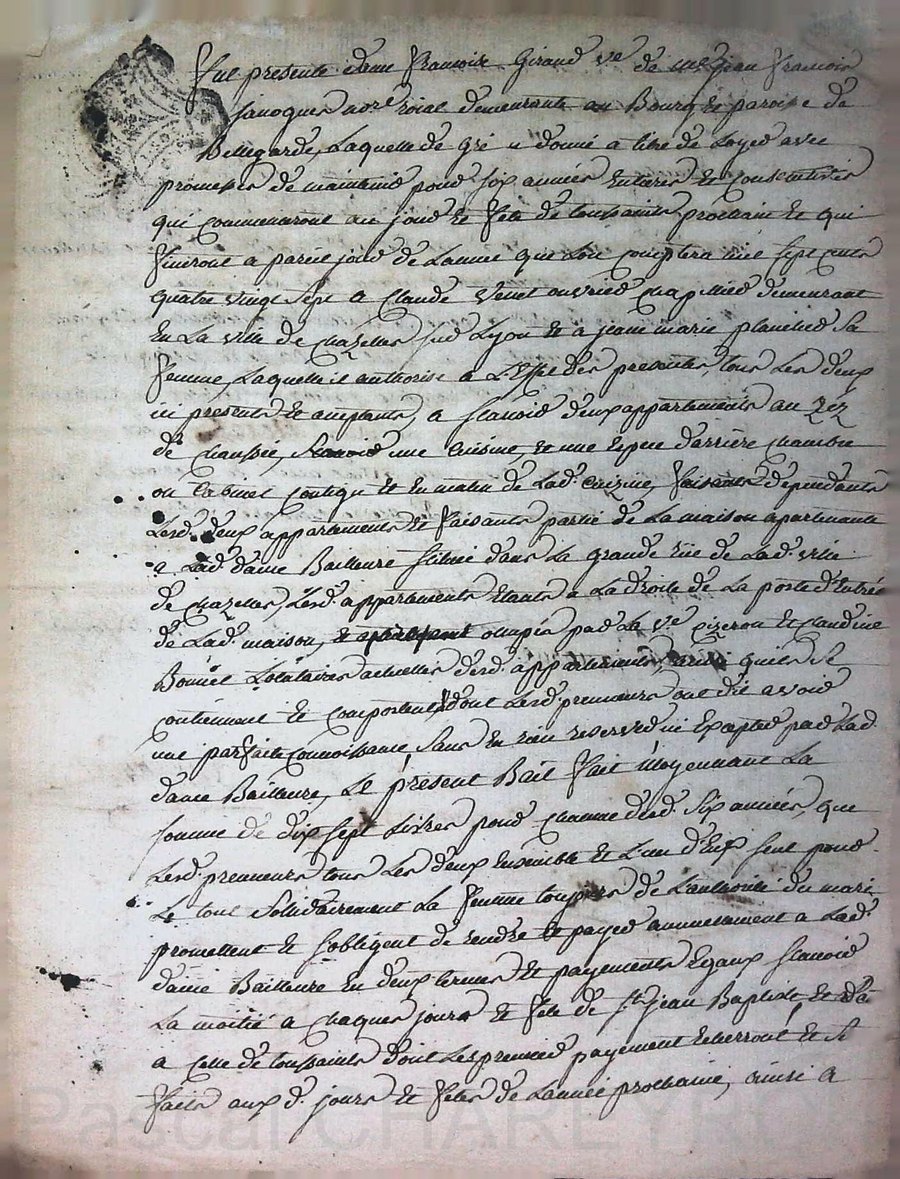 Fut presente dame Francoise Giraud v.e de m.e Jean Francois
Janoques nore. roial demeurante au Bourg et paroisse de
Bellegarde, Laquelle de gré a donné a titre de Loyer avec
promesses de maintenir pour six années Entieres et Consecutives
qui commenceront au jour et fete de toussaints prochain et qui
finiront a pareil jour de Lannée que Lon comptera mil sept cents
quatre vingt sept a Claude Venet ouvrier chapellier demeurant
En La ville de chazelles sur Lyon et a jeanne marie planilier sa
femme, Laquelle il authorise a L'effet des presentes, tous Les deux
ici presents et acceptants, a scavoir deux appartements au Rez
de chaussée, Scavoir une Cuisine, et une Espece darriere chambre
ou Cabinet contigu et En matin de Lad. Cuizine, faisants dependants
Lesd. deux appartements et faisants partie de La maison apartenante
a Lad. dame Bailleure scituée dans La grande rüe de Lad. ville
de chazelles, Lesd. appartements Etants a La droite de La porte d'Entrée
de Lad. maison, occupés par La v.e cizeron et claudine
Bonnet Locataires actuelles desd. appartements, qu'ils se
contiennent et comportent, dont Lesd. preneurs ont dit avoir
une parfaite connoissance, sans En rien reserver ni Excepter par Lad.
dame Bailleure, Le present Bail fait Moyennant La
somme de dix sept Livres pour chacune desd. six années, que
Lesd. preneurs tous Les deux Ensemble et L'un d'Eux seul pour
Le tout solidairement La femme toujours de L'authorité du mari
promettent et sobligent de rendre et payer annuelement a Lad.
dame Bailleure En deux termes et payements Egaux scavoir
La moitié a chaques jours et fete de St. Jean Baptiste et
a Celle de toussaints dont Les premier payement Echerront et se
faits aux d. jours et fetes de Lannée prochaine, ainsi a
Pascal CHAREYRON